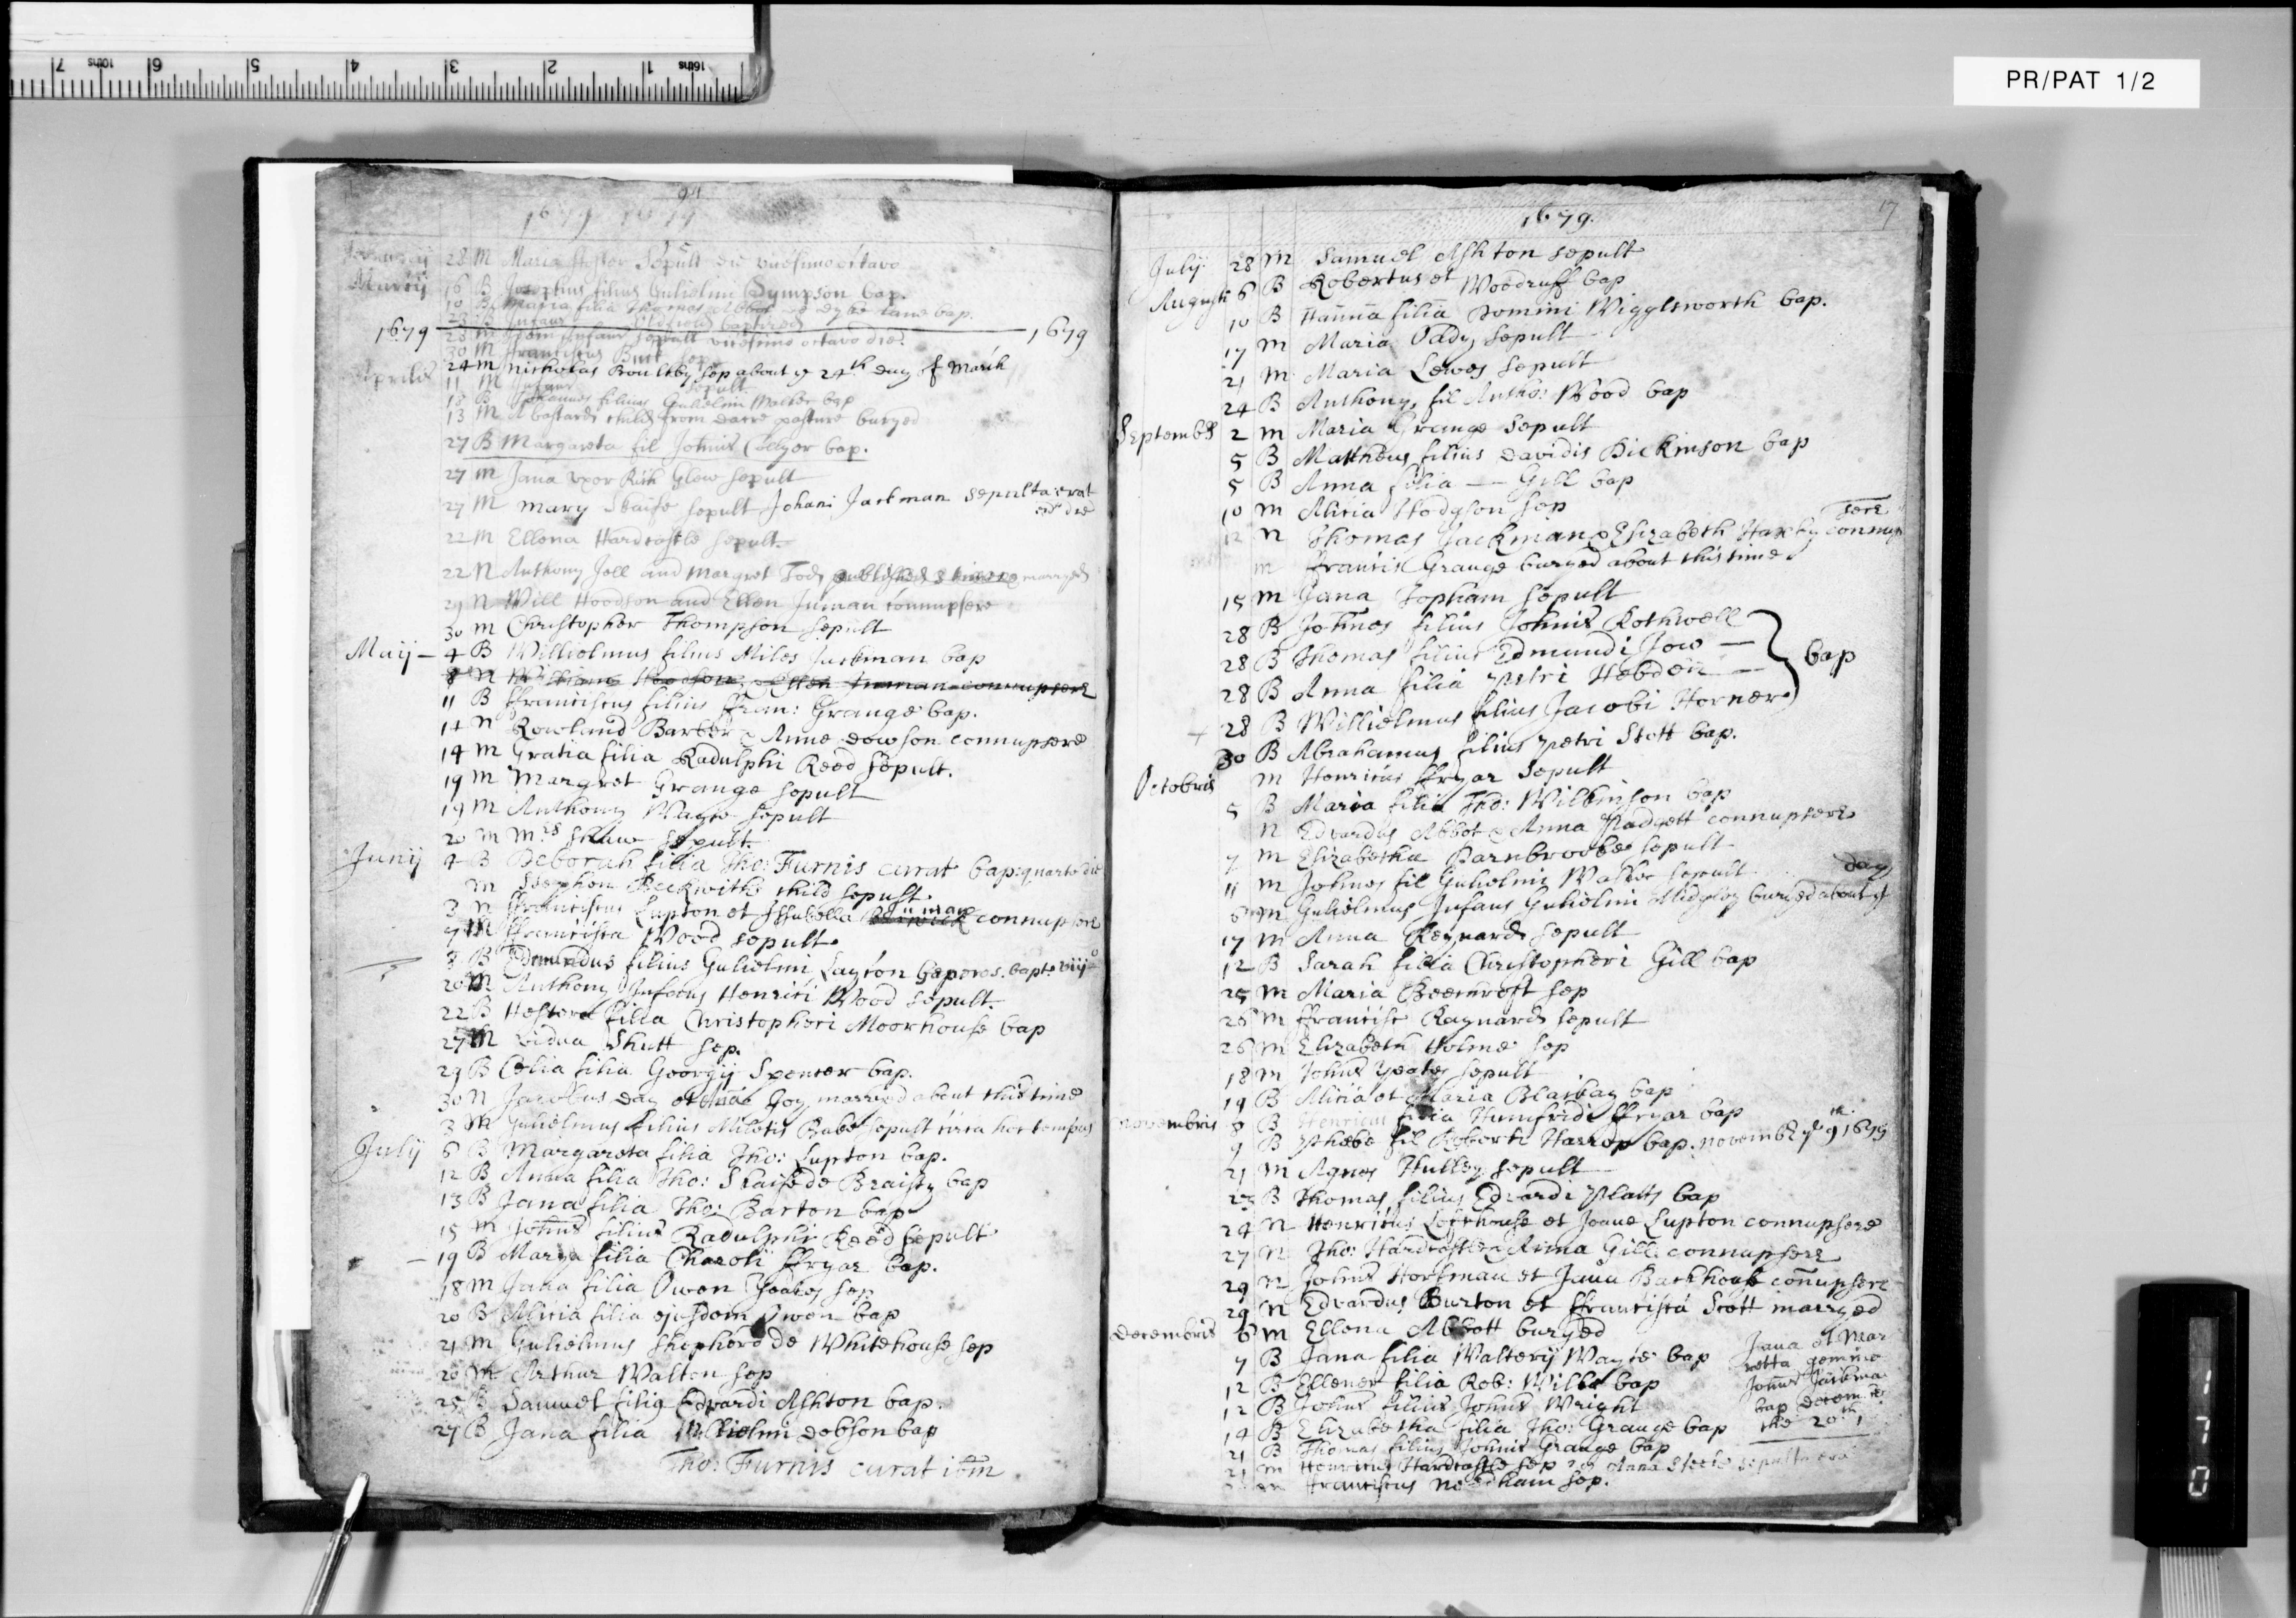 PR/PAT 1/2
28 M Maria Sepult die vicesimo octavo
16 B Josephus filius Gulielmi Sympson bap.
10 B Maria filia Thomas bap.
1679 1679
28 M Infans sepult vicesimo octavo die.
30 M Franciscus Buck sep
Aprilis 24 M Nicholas sep about ye 24th day of March
11 M Infans sepult
18 B Johannes filius Gulielmi Walker bap
13 M A bastards child from pasture buryed
27 B Margareta fil Johnis bap.
27 M Jana uxor Rich Glew sepult
27 M Mary Skaife sepult Johani Jackman sepulta erat
eod die
22 M Ellena Hardcastle sepult
22 N Anthony Joll and Margret published 3 times & marryed
29 N Will Hoodson and Ellen Inman connupsere
30 M Christopher Thompson sepult
Maij 4 B Willielmus filius Miles Jackman bap
8 N William Hoodson & Ellen Inman connupsere
11 B ffranciscus filius ffran: Grange bap.
14 N Rowland Barber & Anne Dowson connupsere
14 M Gratia filia Radulphi Reed sepult.
19 M Margret Grange sepult
19 M Anthony Wayte sepult
20 M Mrs Shaw sepult.
Junij 4 B Deborah filia Tho: Furnis curat bap: quarto die
M Stephen Beckwiths child sepult.
3 N ffranciscus Lupton et Issabella Inman connupsere
7 M ffrancisca Wood sepult.
8 B Edmundus filius Gulielmi Layton bapt viijo
20 M Anthony Infans Henrici Wood sepult.
22 B Hester filia Christopheri Moorhouse bap
27 M vidua Shutt sep.
29 B Celia filia Georgij Spencer bap.
30 N Jacobus Day et Joy married about this time
3 M Gulielmus filius Miletis Babe sepult circa hoc tempus
July 6 B Margareta filia Tho: Lupton bap.
12 B Anna filia Tho: Skaife de Braisty bap
13 B Jana filia Tho: Barton bap
15 M Johnes filius Radulphi Reed sepult
19 B Marya filia Charoli ffryar bap.
18 M Jana filia Owen Yeates sep
20 B Alicia filia ejusdem Owen bap
21 M Gulielmus Shepherd de Whitehouse sep
20 M Arthur Walton sep
25 B Samuel filiq Edvardi Ashton bap.
27 B Jana filia Willielmi Dobson bap
Tho: Furnis curat ibm
1679. 17
July 28 M Samuel Ashton sepult
Augusti 6 B Robertus et Woodruff bap
10 B Hanna filia Domini Wigglsworth bap.
17 M Maria Pady sepult
21 M Maria Lewes sepult
24 B Anthony, fil Antho: Wood bap
September 2 M Maria Grange sepult
5 B Matheus filius Davidis Dickinson bap
5 B Anna filia — Gill bap
10 M Alicia Hodgson sep
12 N Thomas Jackman & Elizabeth Haxby connup
sere
M ffrancis Grange buryed about this time
15 M Jana Topham sepult
28 B Johnes filius Johnis Rothwell
28 B Thomas filius Edmundi Jow —
28 B Anna filia Petri Hebden — bap
28 B Willielmus filius Jacobi Horner
30 B Abrahamus filius Petri Stott bap.
Octobris M Henricus ffryar sepult
5 B Maria filia Tho: Wilkinson bap
N Edvardus Abbot & Anna Padgett connupsere
7 M Elizabetha Barnbrooke sepult
11 M Johnes fil Gulielmi Walker sepult day
6 M Gulielmus Infans Gulielmi Midgley buryed about ye
17 M Anna Reynards sepult
12 B Sarah filia Christopheri Gill bap
25 M Maria Beecroft sep
26 M ffrancisc Raynards sepult
26 M Elizabeth Holme sep
18 M Johnes Yeates sepult
19 B Alicia et Maria Blaikay bap
Novembris 8 B filia Humfridi ffryar bap
9 B Phebe fil Roberti Harrop bap. Novemb ye 9th 1679
21 M Agnes Hulley sepult
23 B Thomas filius Edvardi Platts bap
24 N Henricus Lofthouse et Joane Lupton connupsere
27 N Tho: Hardcastle & Anna Gill connupsere
29 N Johnes Horsman et Jana Backhouse connupsere
29 N Edvardus Burton et ffrancisca Scott marryed
Decembris 6 M Ellena Abbott buryed
7 B Jana filia Walterij Wayte bap
12 B Ellener filia Rob: Wilks bap
12 B Johnes filius Johnis Wright
14 B Elizabetha filia Tho: Grange bap
21 B Thomas filius Johnis Grange bap
21 M Henricus Hardcastle sep Anna Steele sepulta era
M ffranciscus Needham sep.
Jana et Mar
retta gemine
Johnis Jackma
bap Decem
the 20th
170